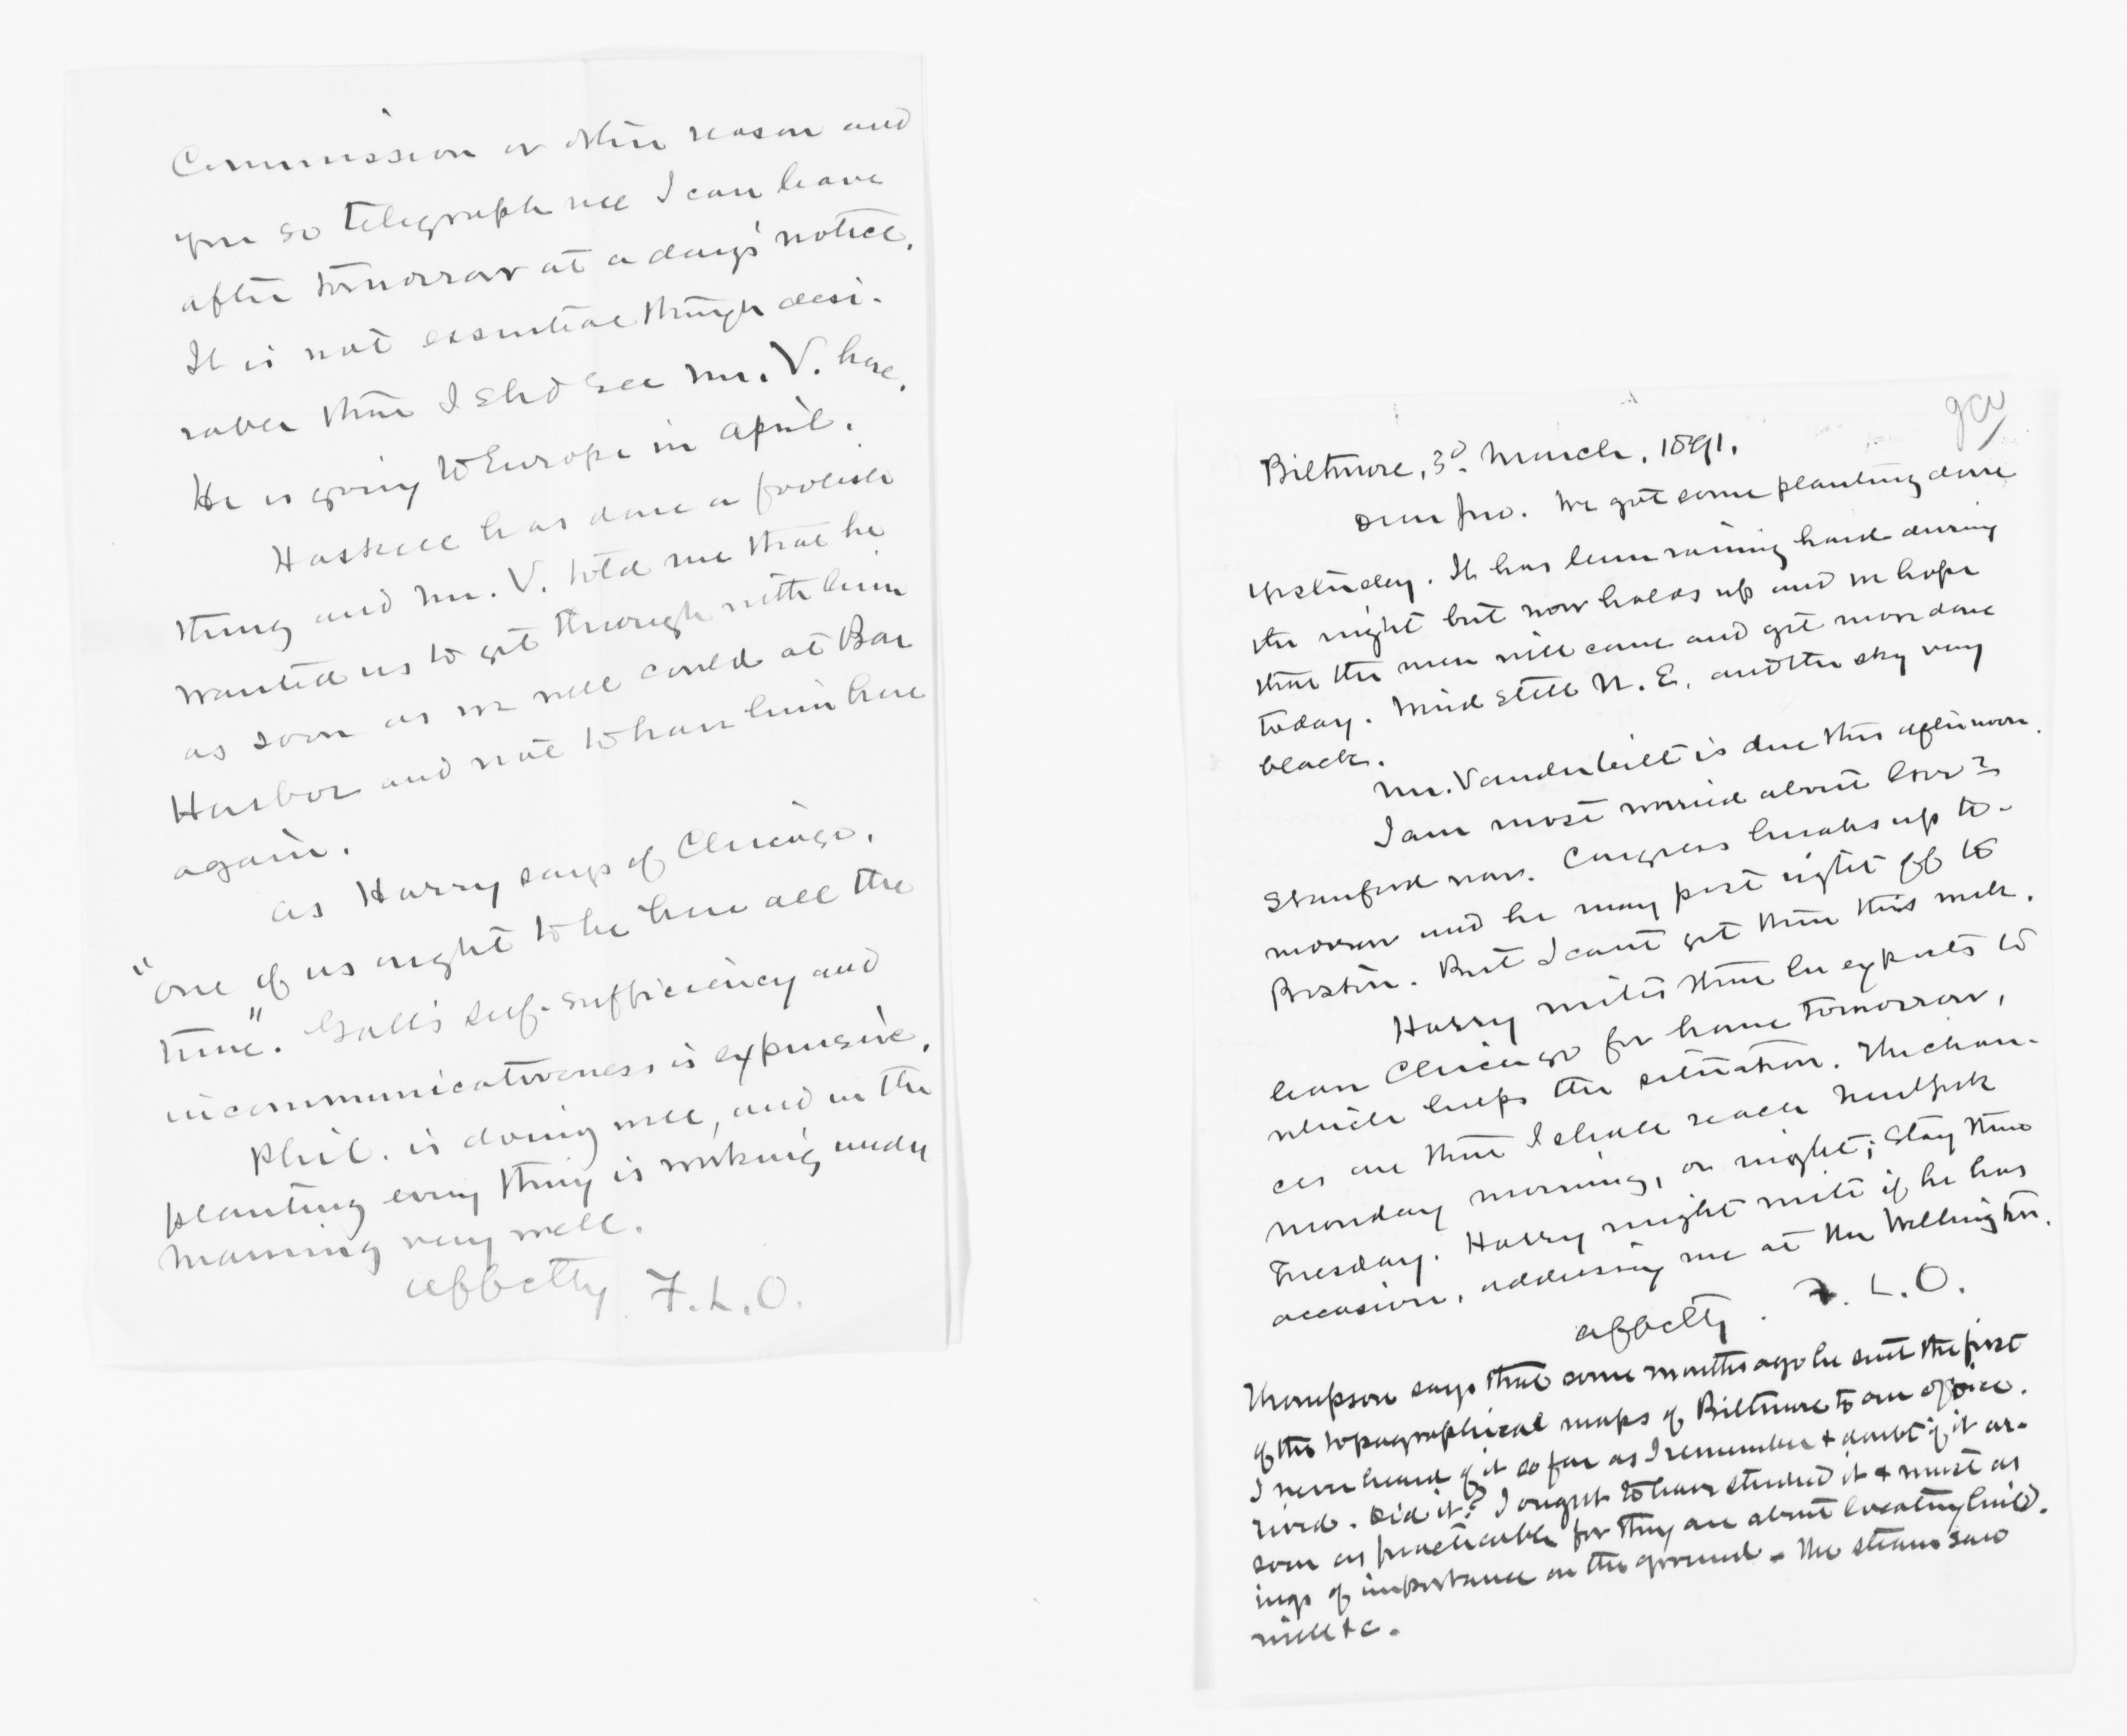 Commission or other reason and
you so telegraph me I can leave
after tomorrow at a day's notice.
It is not essential though desi-
rable that I sh'd see Mr. V. here.
He is going to Europe in April.
Haskell has done a foolish
thing and Mr. V. told me that he
wanted us to get through with him
as soon as we well could at Bar
Harbor and not to have him here
again.
As Harry says of Chicago,
"one of us ought to be here all the
time". Gall's self-sufficiency and
incommunicativeness is expensive.
Phil. is doing well, and in the
planting every thing is working under
Manning very well.
Affectly F.L.O.
Biltmore, 3d March, 1891.
Dear Jno. We got some planting done
yesterday. It has been raining hard during
the night but now holds up and we hope
that the men will come and get more done
today. Wind still N.E. and the sky very
black.
Mr. Vanderbilt is due this afternoon.
I am most worried about Gov'r
Stanford now. Congress breaks up to-
morrow and he may post right off to
Boston. But I can't get there this week.
Harry writes that he expects to
leave Chicago for home tomorrow,
which helps the situation. The chan-
ces are that I shall reach New York
Monday morning, or night; stay thro
Tuesday. Harry might write if he has
occasion, addressing me at the Wellington.
Affectly. F.L.O.
Thompson says that some months ago he sent the first
of the topographical maps of Biltmore to our office.
I never heard of it so far as I remember & doubt if it ar-
rived. Did it? I ought to have studied it & must as
soon as practicable for they are about locating build-
ings of importance on the ground - The steam saw
mill &c.